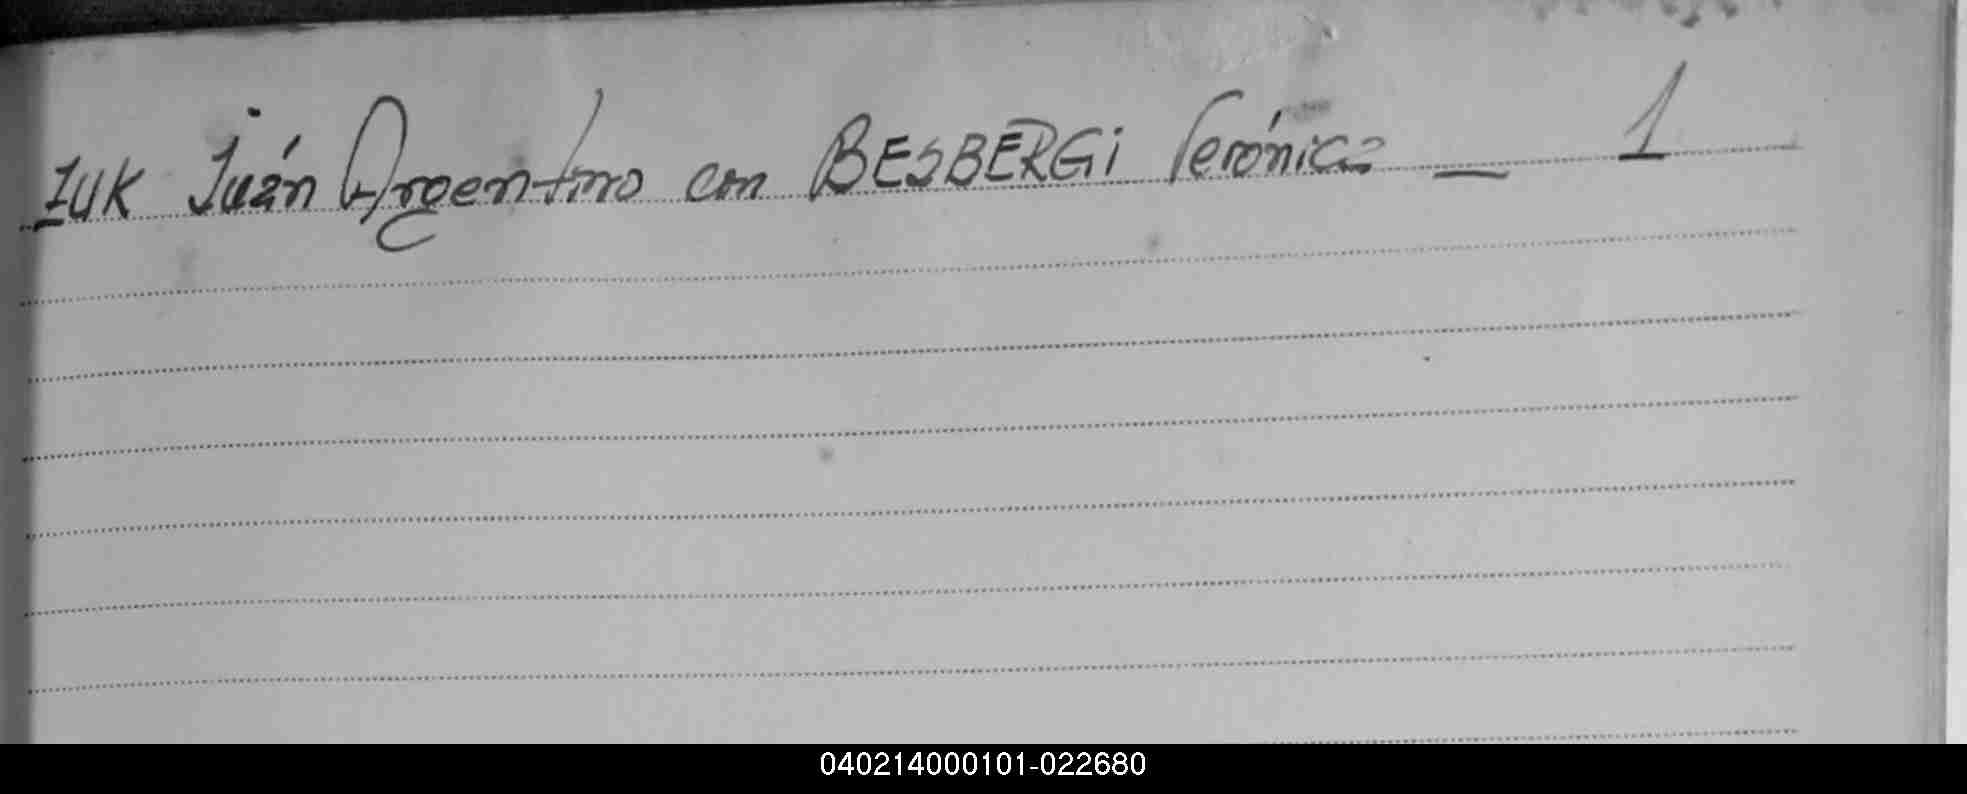 ZUK Juán Argentino con BESBERGi Verónica — 1
040214000101-022680